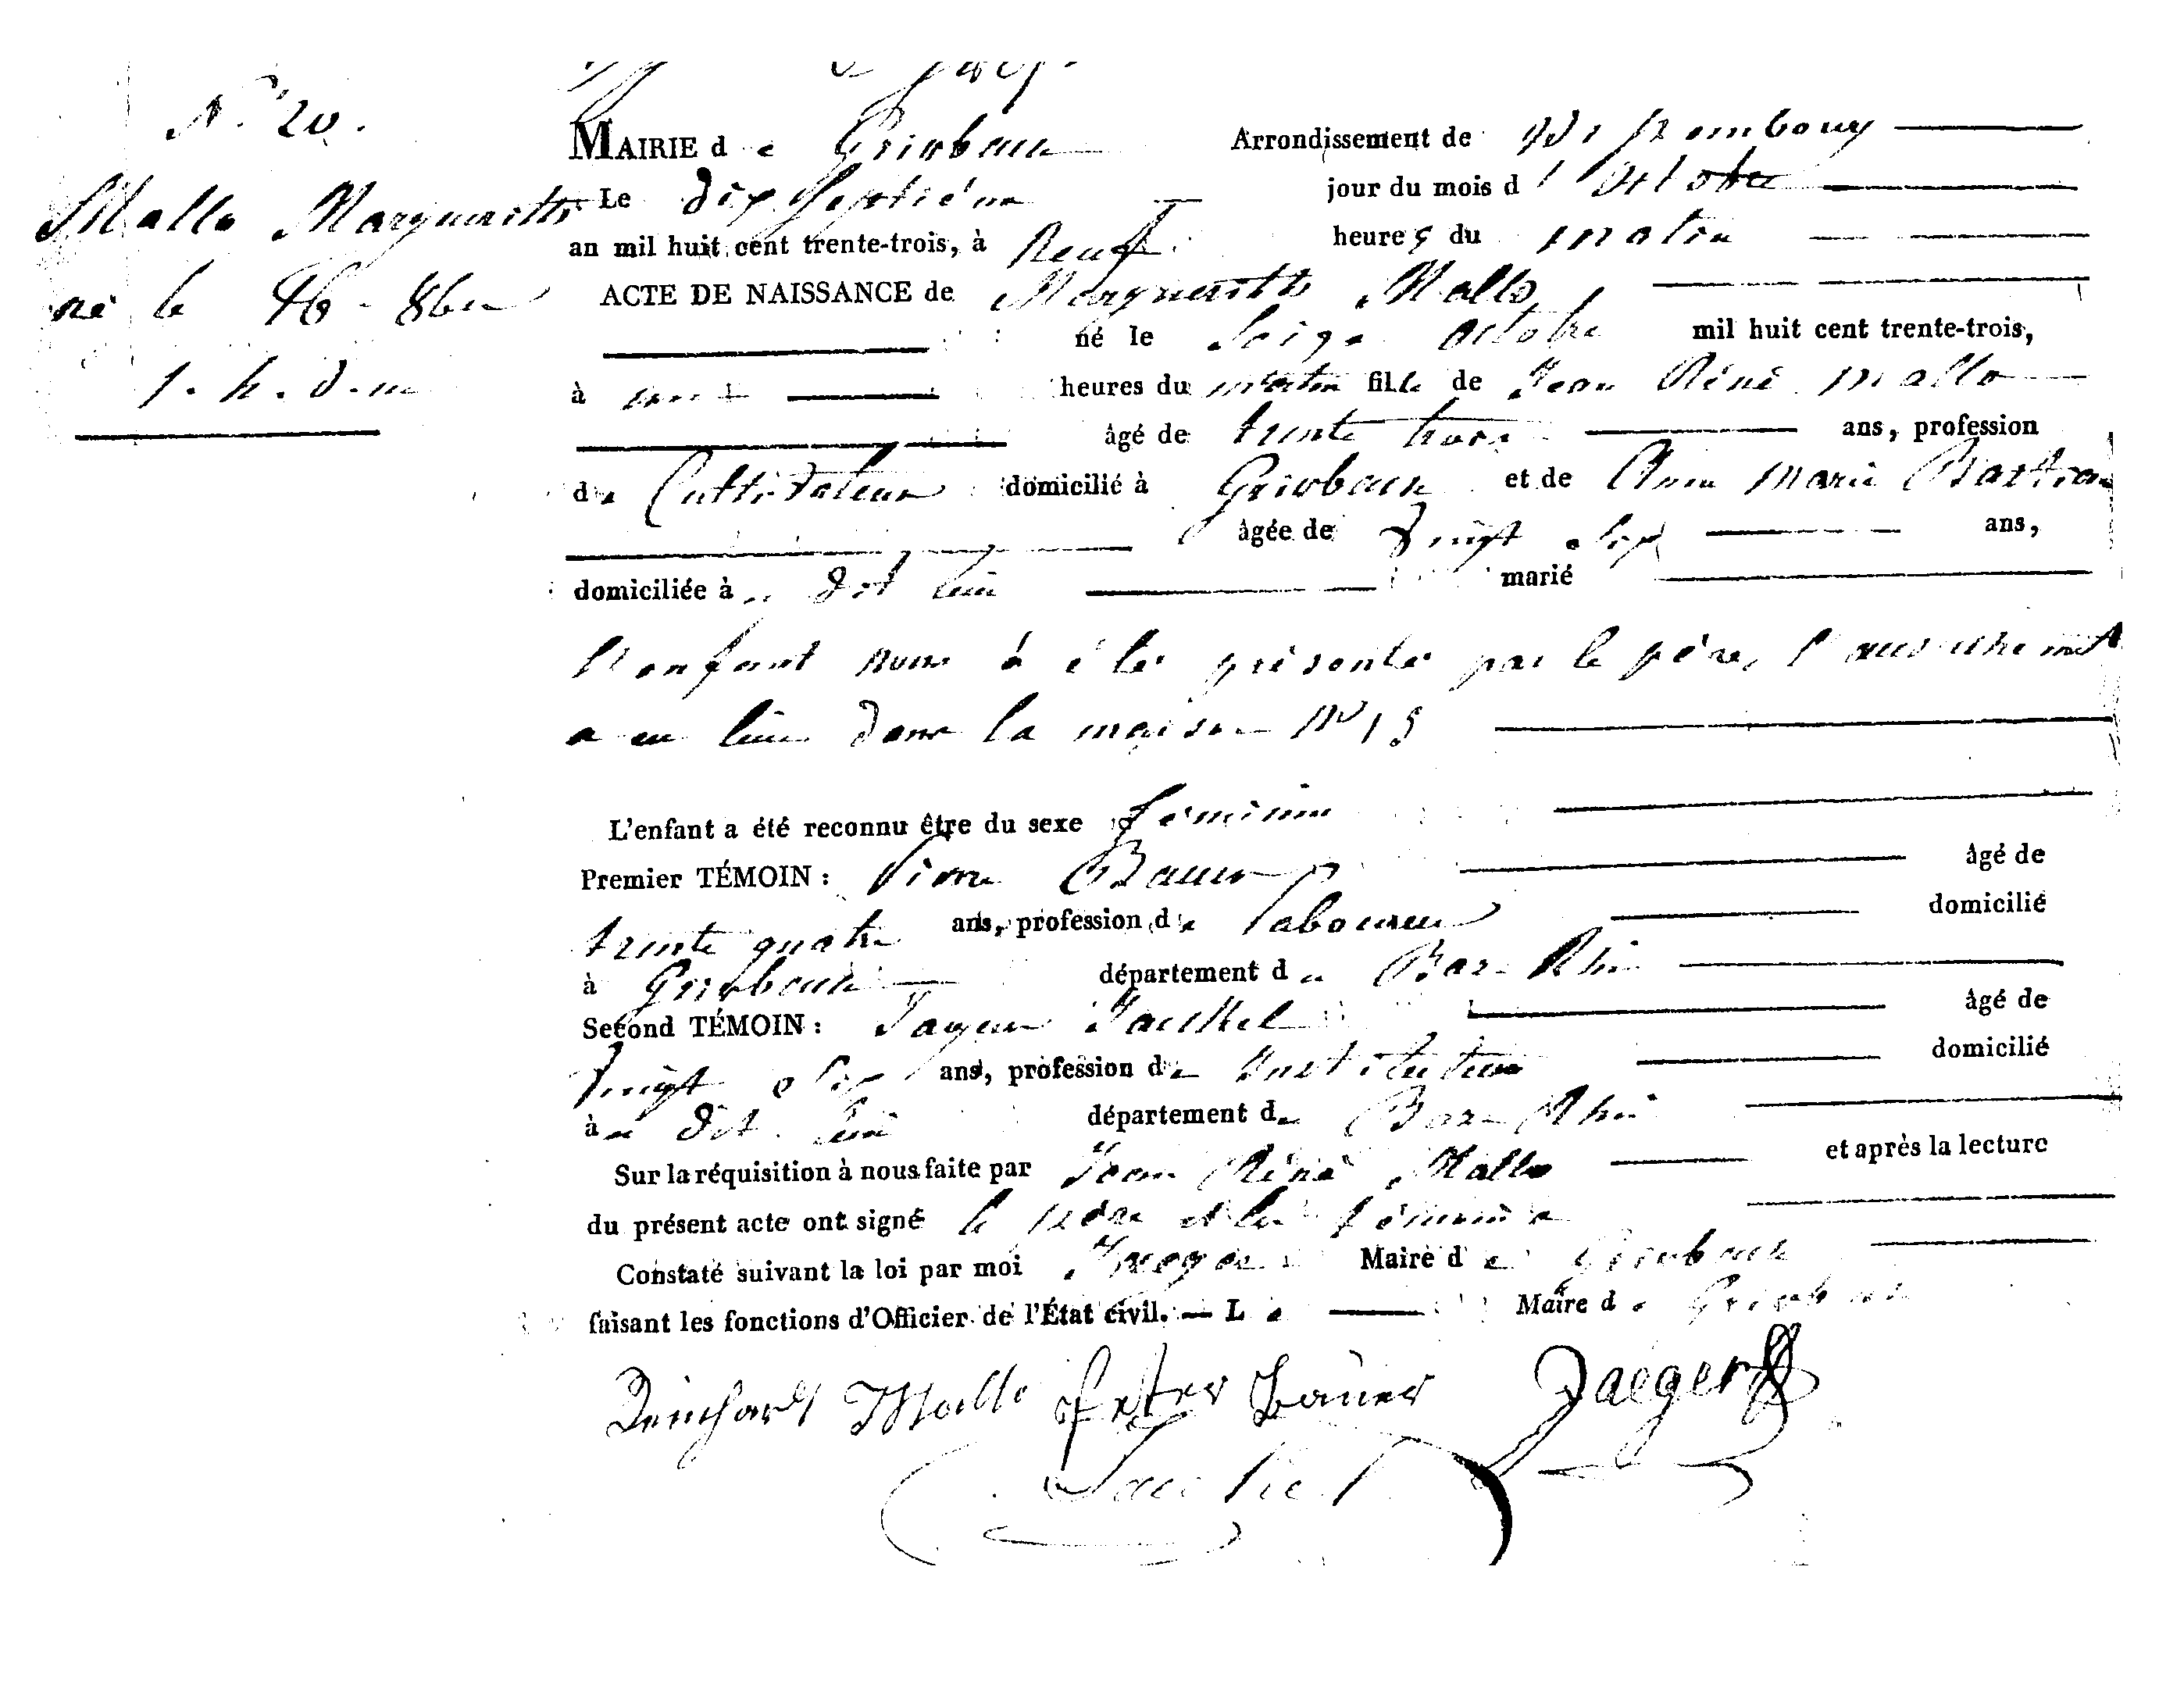 N.° 20.
MAIRIE de Griesbach Arrondissement de Wissembourg
Mallo Marguerithe
Le dix Septième jour du mois d'Octobre
an mil huit cent trente-trois, à Neuf heures du matin
né le 16 - 8bre
ACTE DE NAISSANCE de Marguerithe Mallo
né le Seize Octobre mil huit cent trente-trois,
1. h. d. m
à une heures du matin fille de Jean Réné Mallo
âgé de trente trois ans, profession
de Cultivateur domicilié à Griesbach et de Anna Marie Bastian
âgée de Vingt Six ans,
domiciliée à dit lieu marié
l'enfant nous à étés présentés par le père, l'accouchement
a eu lieu dans la maison N°
L'enfant a été reconnu être du sexe féminin
Premier TÉMOIN : Pierre Bauer âgé de
trente quatre ans, profession de laboureur domicilié
à Griesbach département de Bas-Rhin
Second TÉMOIN : Jaeckel âgé de
Vingt Six ans, profession de Instituteur domicilié
à dit lieu département de Bas-Rhin
Sur la réquisition à nous faite par Jean Réné Mallo et après la lecture
du présent acte ont signé le père et les témoins
Constaté suivant la loi par moi Jaeger Maire de Griesbach
faisant les fonctions d'Officier de l'État civil. — Le Maire de Griesbach
Reinhard Mallo Peter Bauer Jaeger
Jaeckel